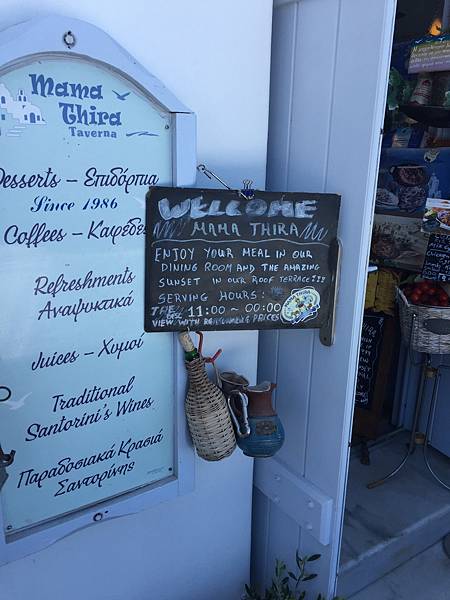 Mama
Thira
Taverna
Desserts – Επιδόρπια
Since 1986
Coffees – Καφεδες
Refreshments
Αναψυκτικά
Juices – Χυμοί
Traditional
Santorini's Wines
Παραδοσιακά Κρασιά
Σαντορίνης
WELCOME
MAMA THIRA
ENJOY YOUR MEAL IN OUR
DINING ROOM AND THE AMAZING
SUNSET IN OUR ROOF TERRACE!!!
SERVING HOURS:
11:00 ~ 00:00
THE BEST
VIEW WITH REASONABLE PRICES